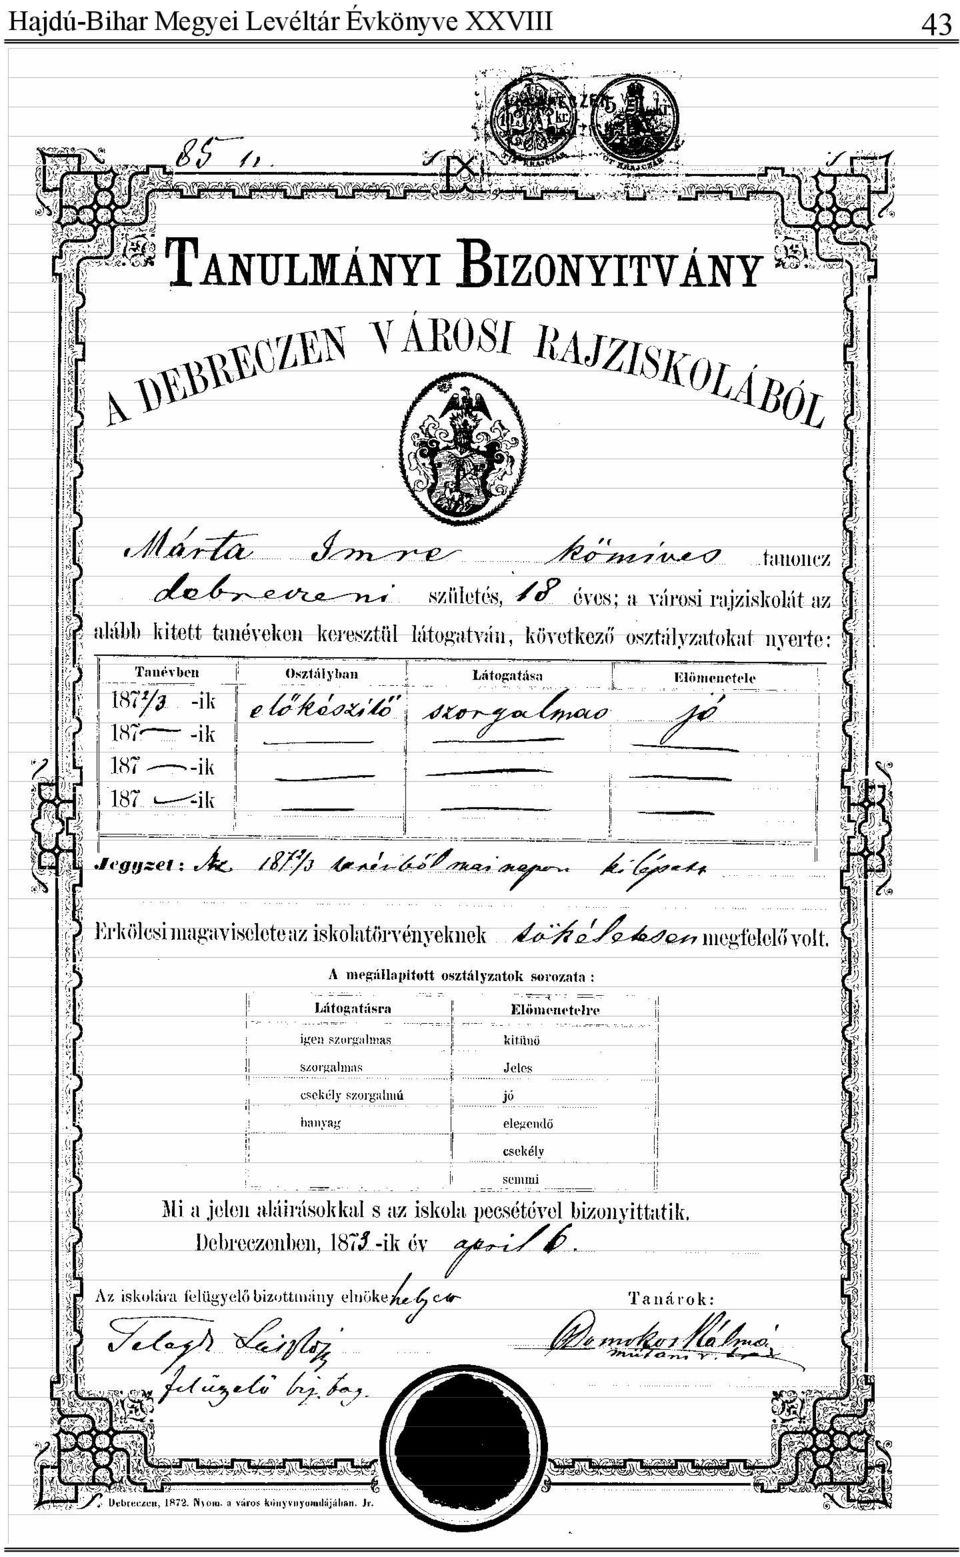 Hajdú-Bihar Megyei Levéltár Évkönyve XXVIII 43
85
TANULMÁNYI BIZONYITVÁNY
A DEBRECZEN VÁROSI RAJZISKOLÁBÓL
Márta Imre kömives tanoncz
debreczeni születés, 18 éves; a városi rajziskolát az
alább kitett tanéveken keresztül látogatván, következő osztályzatokat nyerte:
Tanévben Osztályban Látogatása Előmenetele
187 2/3 -ik előkészitő szorgalmas jó
187 -ik
187 -ik
187 -ik
Jegyzet: Az 187 2/3 tanévből mai napon kilépett
Erkölcsi magaviselete az iskolatörvényeknek tökéletesen megfelelő volt.
A megállapitott osztályzatok sorozata:
Látogatásra Előmenetelre
igen szorgalmas kitünő
szorgalmas Jeles
csekély szorgalmú jó
hanyag elegendő
csekély
semmi
Mi a jelen aláirásokkal s az iskola pecsétével bizonyittatik.
Debreczenben, 1873-ik év april 6.
Az iskolára felügyelő bizottmány elnöke helyett Tanárok:
Telegdi László Domokos Kálmán
felügyelő biz. tag.
Debreczen, 1872. Nyom. a város könyvnyomdájában. Jr.